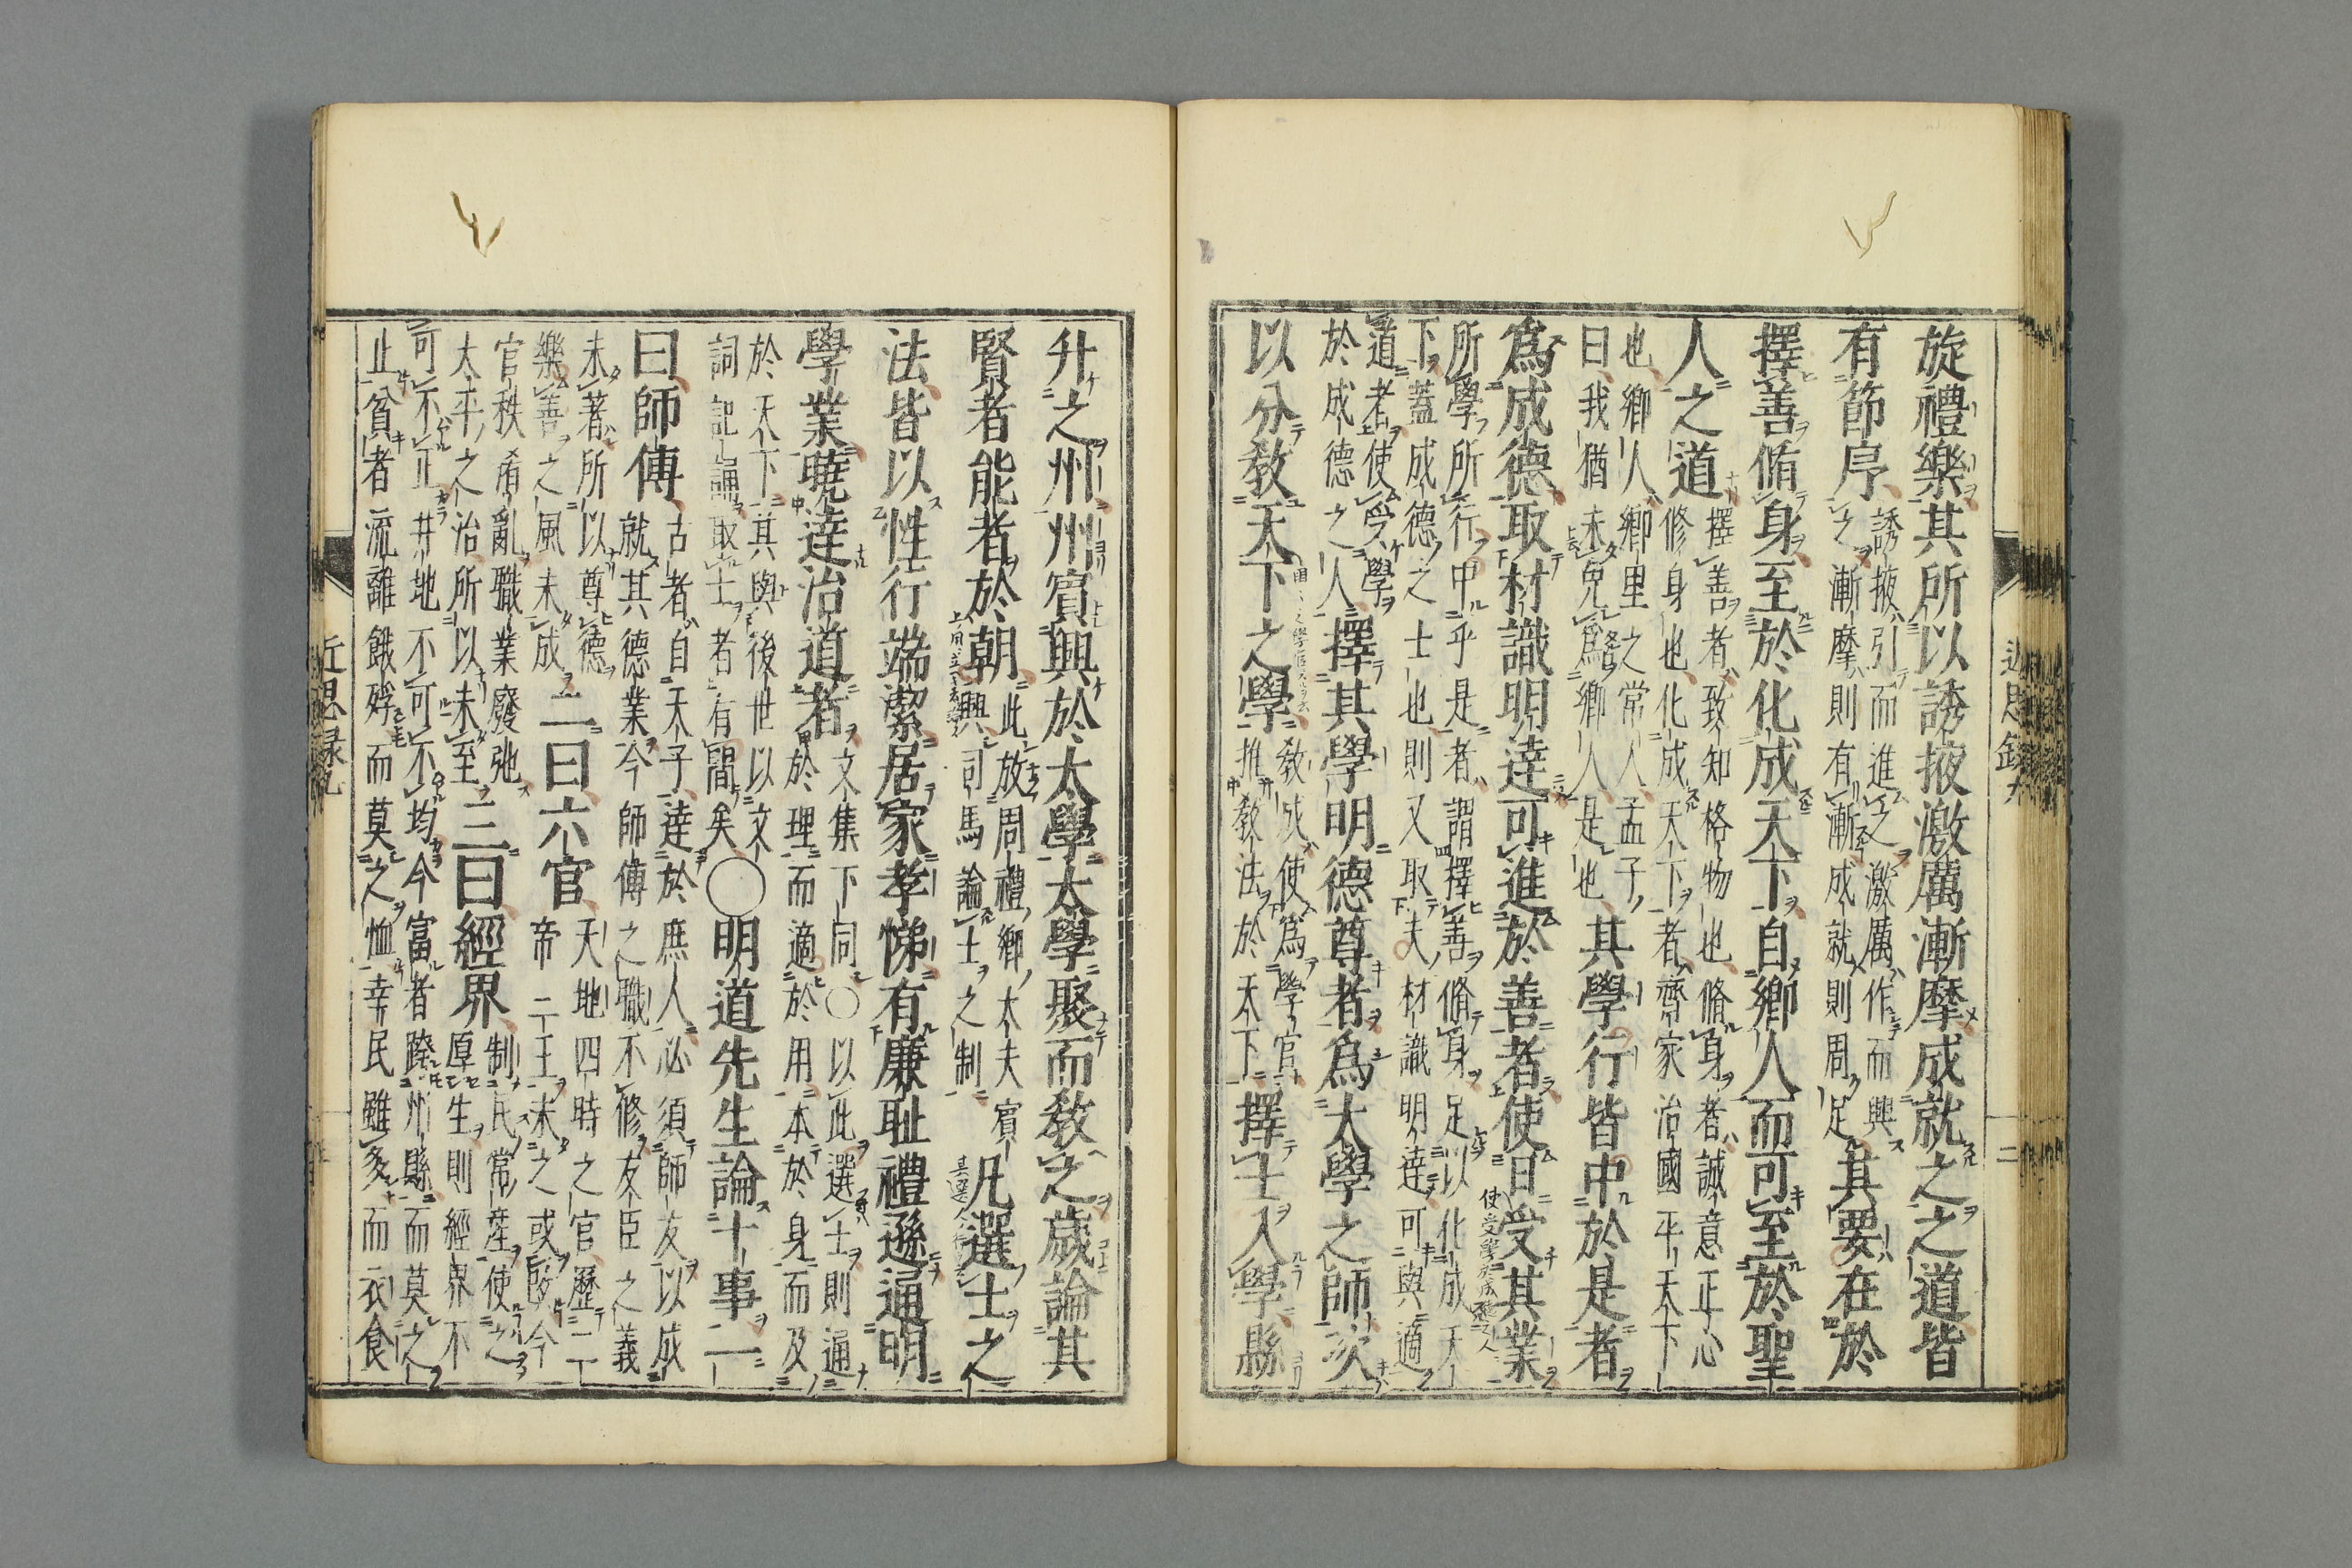 旋禮樂其所以誘掖激厲漸摩成就之之道皆
有節序誘掖引而進之激厲作而興
之漸摩則有漸成就則周足其要在於
擇善脩身至於化成天下自鄉人而可至於聖
人之道擇善者致知格物也脩身者誠意正心
修身也化成天下者齊家治國平天下
也鄉人鄉里之常人孟子
曰我猶未免爲鄉人是也其學行皆中於是者
爲成德取材識明達可進於善者使日受其業
所學所行中乎是者謂擇善脩身足以化成天
下蓋成德之士也則又取夫材識明達可與適
道者使受學
於成德之人擇其學明德尊者爲太學之師次
以分敎天下之學敎成使爲學官
推敎法於天下擇士入學縣
近思錄九
二
升之州州賓興於太學太學聚而敎之歲論其
賢者能者於朝此放周禮鄉大夫賓
興司馬論士之制凡選士之
法皆以性行端潔居家孝悌有廉耻禮遜通明
學業曉達治道者文集下同○以此選士則通
於理而適於用本於身而及
於天下其與後世以文
詞記誦取士者有間矣○明道先生論十事一
曰師傅古者自天子達於庶人必須師友以成
就其德業今師傅之職不修友臣之義
未著所以尊德
樂善之風未成二曰六官天地四時之官歷二
帝三王未之或改今
官秩淆亂職業廢弛
太平之治所以未至三曰經界制民常產使之
厚生則經界不
可不正井地不可不均今富者跨州縣而莫之
止貧者流離餓殍而莫之恤幸民雖多而衣食
近思録九